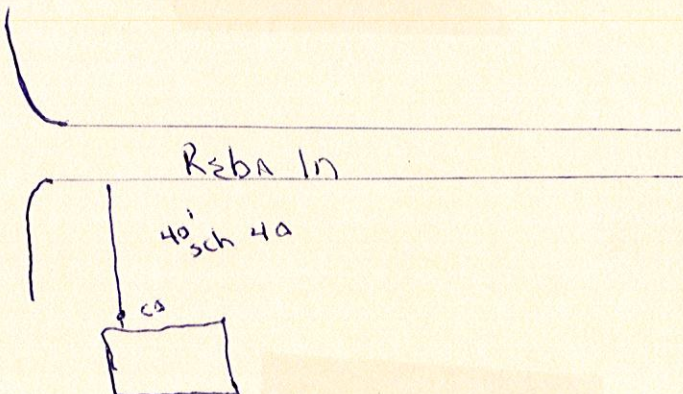 Reba ln
40' sch 40
co